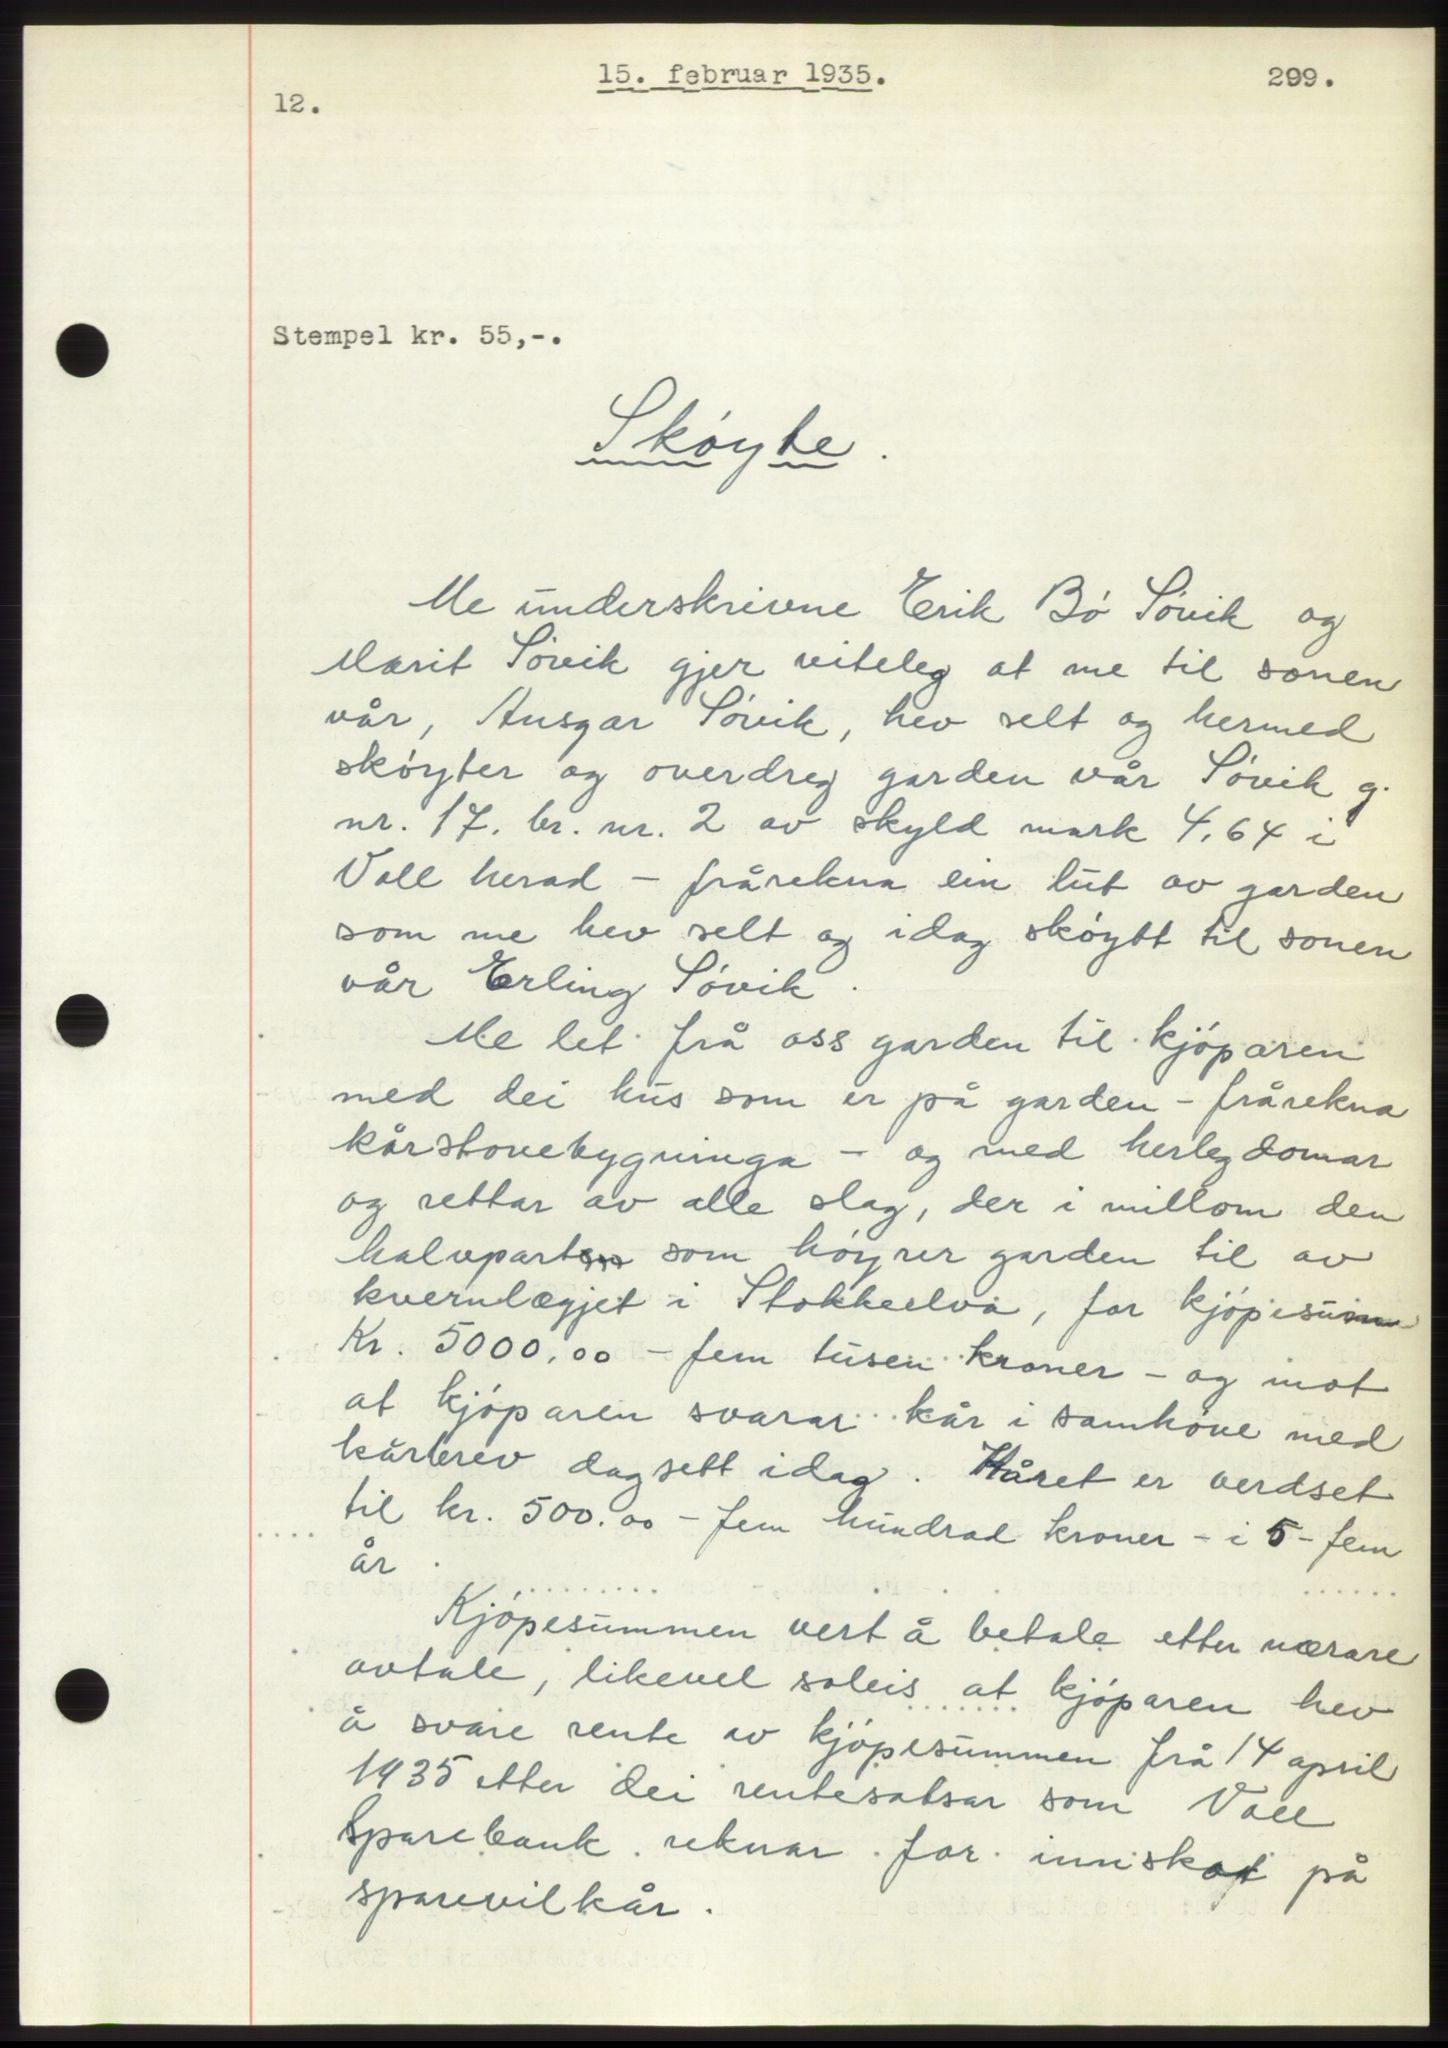 15. februar 1935.
299.
12.
Stempel kr. 55,-.
Skøyte.
Me underskrivne Erik Bø Søvik og
Marit Søvik gjer viteleg at me til sonen
vår, Ansgar Søvik, hev selt og hermed
skøyter og overdreg garden vår Søvik g.
nr. 17. br. nr. 2 av skyld mark 4,64 i
Voll herad - frårekna ein lut av garden
som me hev selt og idag skøytt til sonen
vår Erling Søvik.
Me let frå oss garden til kjøparen
med dei hus som er på garden - frårekna
kårstovebygninga - og med herlegdomar
og rettar av alle slag, der i millom den
halvparten som høyrer garden til av
kvernlægjet i Stokkeelva, for kjøpesum
Kr. 5000,00 - fem tusen kroner - og mot
at kjøparen svarar kår i samhøve med
kårbrev dagsett idag. Kåret er verdset
til kr. 500.00 - fem hundrad kroner - i 5 - fem
år.
Kjøpesummen vert å betale etter nærare
avtale, likevel soleis at kjøparen hev
å svare rente av kjøpesummen frå 14 april
1935 etter dei rentesatsar som Voll
Sparebank reknar for innskot på
sparevilkår.